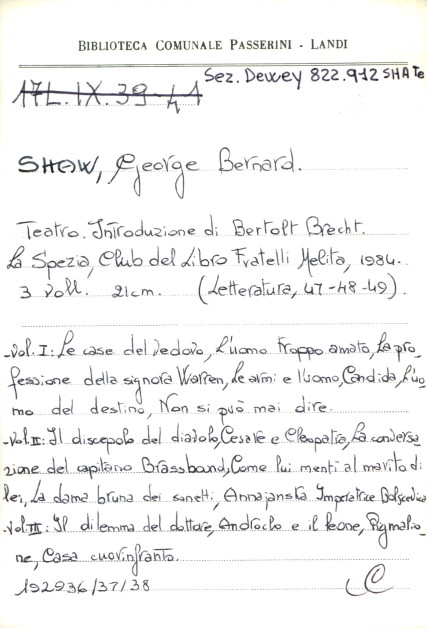 BIBLIOTECA COMUNALE PASSERINI - LANDI
Sez. Dewey 822.912 SHATe
17L.IX.39
SHOW, George Bernard.
Teatro. Introduzione di Bertolt Brecht.
La Spezia, Club del Libro Fratelli Melita, 1984.
3 voll. 21cm. (Letteratura, 47-48-49).
-Vol. I: Le case del vedovo, L'uomo troppo amato, La pro-
fessione della signora Warren, Le armi e l'uomo, Candida, L'uo-
mo del destino, Non si può mai dire.
-Vol. II: Il discepolo del diavolo, Cesare e Cleopatra, La conversa
zione del capitano Brassbound, Come lui mentì al marito di
lei, La dama bruna dei sonetti, Annajanska Imperatrice Bolscevica
-Vol. III: Il dilemma del dottore, Androclo e il leone, Pigmalio-
ne, Casa cuorinfranto.
192936/37/38